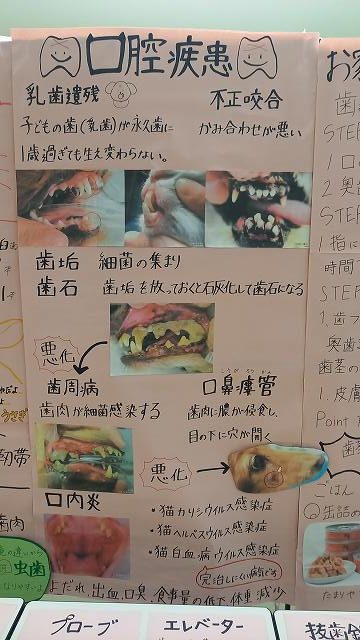 口腔疾患
乳歯遺残
子どもの歯(乳歯)が永久歯に
1歳過ぎても生え変わらない。
不正咬合
かみ合わせが悪い
歯垢 細菌の集まり
歯石 歯垢を放っておくと石灰化して歯石になる
悪化
歯周病
歯肉が細菌感染する
こうびろうかん
口鼻瘻管
歯肉に膿が侵食し、
目の下に穴が開く
悪化
口内炎
・猫カリシウイルス感染症
・猫ヘルペスウイルス感染症
・猫白血病ウイルス感染症
完治しにくい病気です
よだれ、出血、口臭、食事量の低下、体重減少
靭帯
歯肉
虫歯
なりやすいよ
STEP
1 口
STEP
1 指に
時間
STEP
1. 歯ブ
奥歯
歯茎の
1. 皮膚
Point
ごはん
缶詰の
プローブ
エレベーター
抜歯